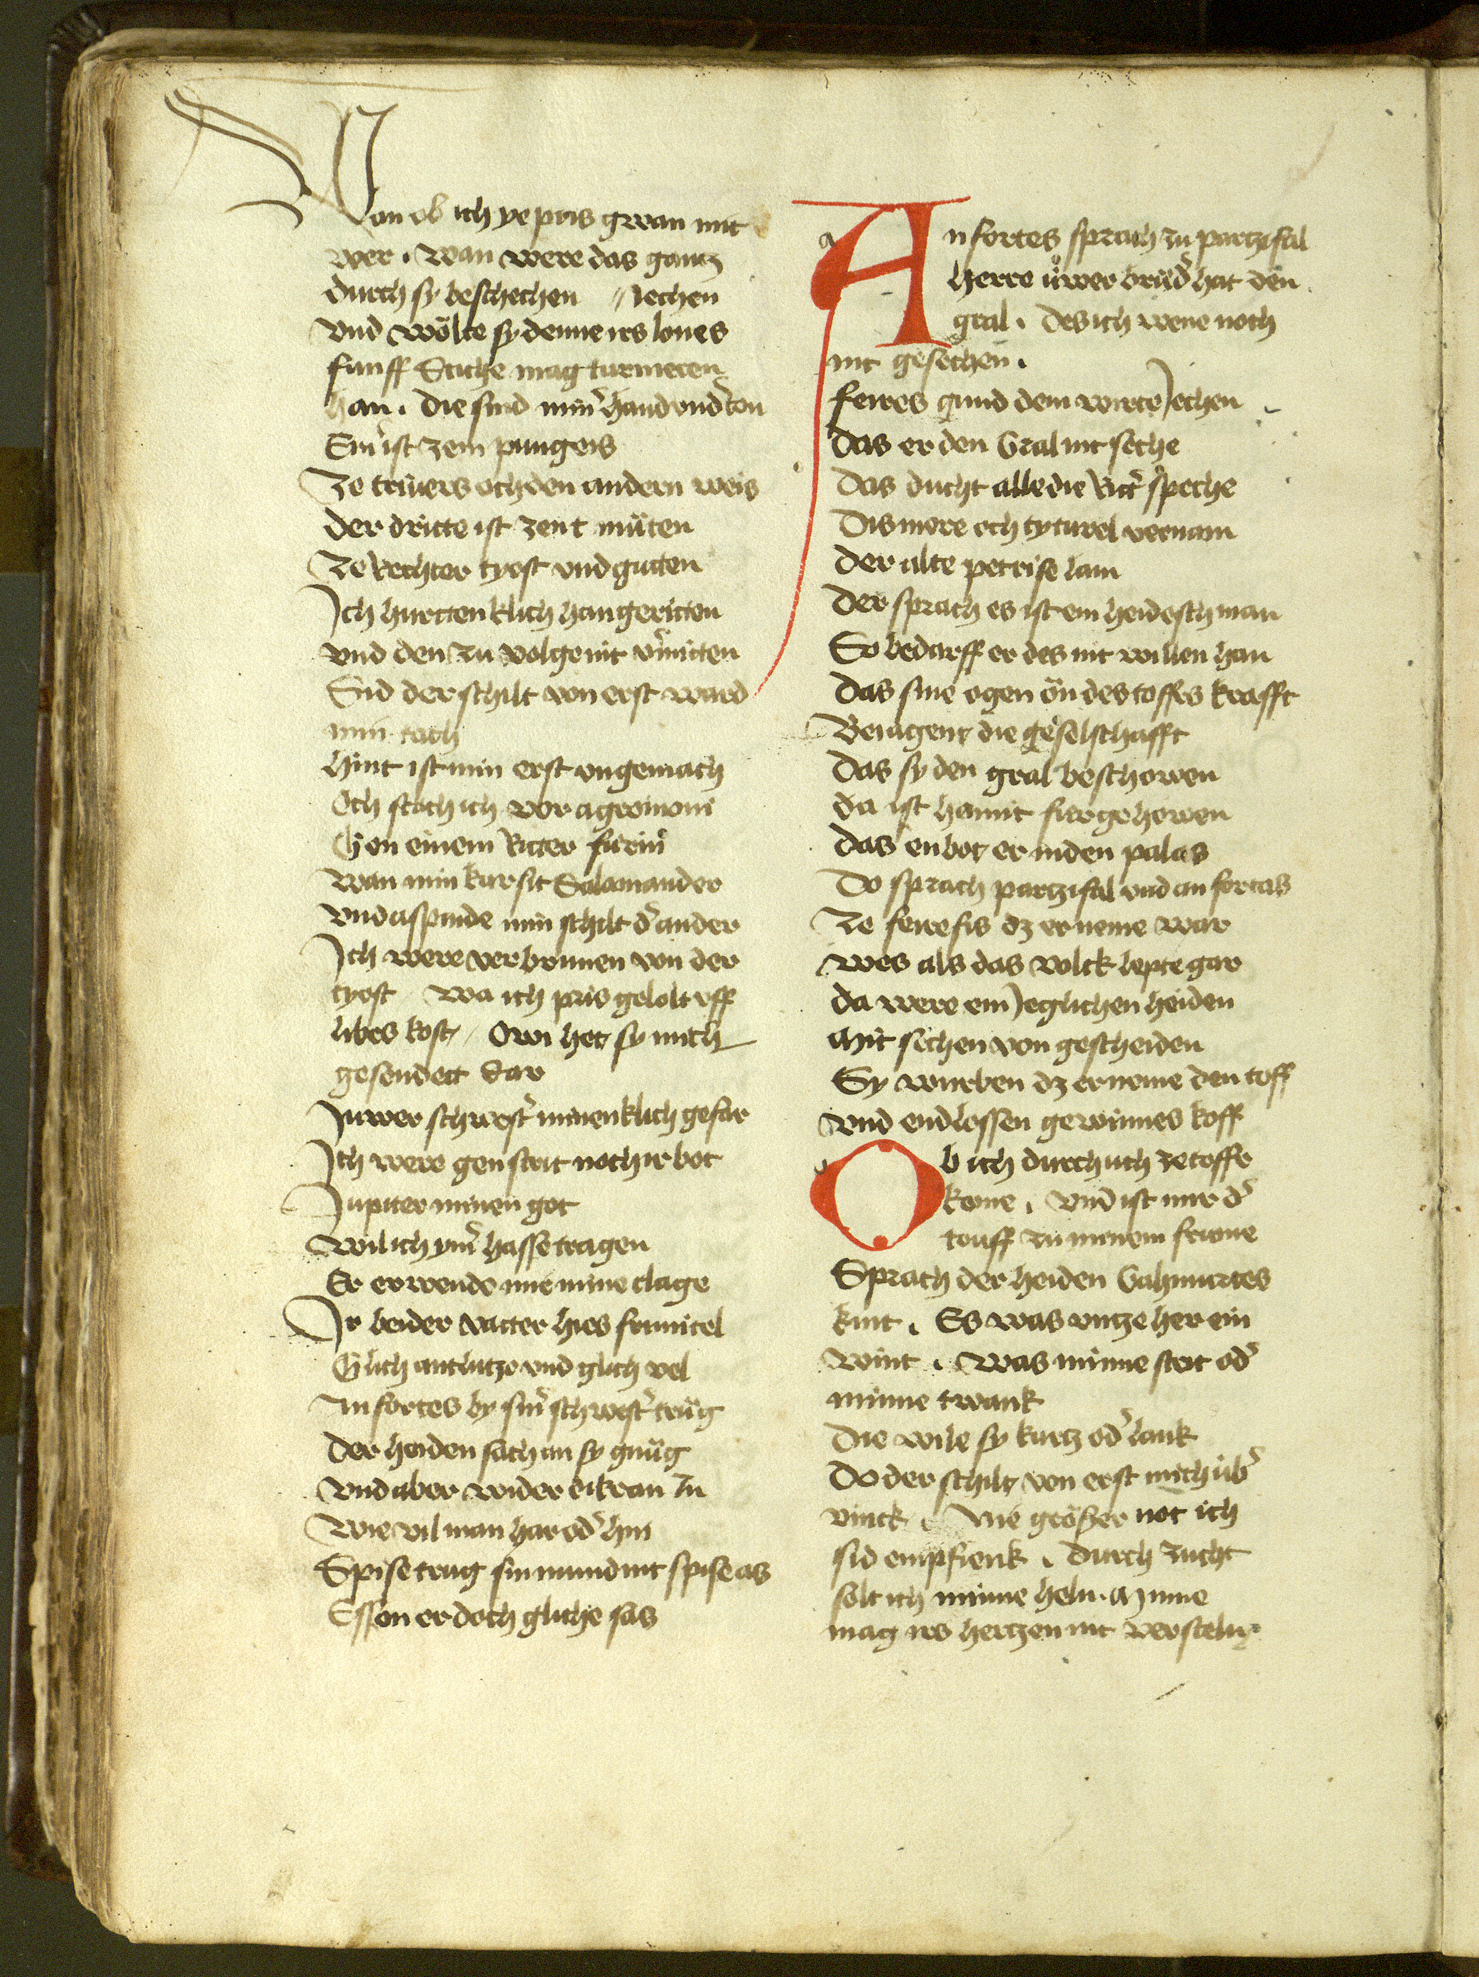 Von ob ich ye pris gwan mit
wer . wan were das gantz
durch sy beschechen // Jechen
vnd wölte sy denne irs lones
funff Stiche mag turnieren
han . die sind min͛ hand vnd͛ton
Ein͛ ist zem pungeis
Ze triuiers och den andern weis
der dritte ist zent müten
Ze Rechter tyost vnd guten
Ich hurttenklich han geritten
vnd den zu volge nit v͛mitten
Sid der schilt von erst ward
min tach
hint ist min erst vngemach
Och stach ich vor agremoni
Gen einem Ritter fürin͛
wan min kursit Salamander
vnd aspinde min schilt d͛ ander
Ich were verbrunnen von der
tyost wa ich pris geholt vff
libes kost / Owi het sy mich
gesendett dar
Juwer schwest͛ minenklich gefar
Ich were gen streit noch ir bot
Jupiter minen got
wil ich ym͛ hasse tragen
Er erwende mir mine clage
Ir beider vatter hies frimitel
Glich antlutze vnd glich vel
Anfortes by sin͛ schwest͛ trüg
der heiden sach an sy gnüg
vnd aber wider dikran zu
wie vil man har od͛ hin
Spise trug sin mund nit spise as
Essen er doch gliche sas
Anfortes sprach zu partzifal
herre üwer brüd͛ hat den
gral . des ich wene noch
nit gesechen .
feires gund dem wirte Jechen
das er den Gral nit seche
das ducht alle die Ritt͛ speche
Dis mere och tyturel vernam
der alte petrise lam
der sprach es ist ein heidesch man
So bedarff er des nit willen han
das sine ogen ön des toffes krafft
Beiagent die geselschafft
das sy den gral beschowen
da ist hamit fur gehowen
das enbot er in den palas
Do sprach partzifal vnd anfortas
Ze feirefis dz er neme war
wes als das volck lepte gar
da were ein Jeglichen heiden
Mit sechen von gescheiden
Sy wurben dz er neme den toff
vnd endlossen gewinnes koff
Ob ich durch uch ze toffe
kome . vnd ist mir d͛
touff zu minem frume
Sprach der heiden Gahmurtes
kint . Es was vntze her ein
wint . was minne streit od͛
minne twank
Die wile sy kurtz od͛ lank
Do der schilt von erst mich üb͛
vinck . Nie grösser not ich
sid empfienk . durch zucht
solt ich minne heln . Minne
mag irs hertzen nit versteln